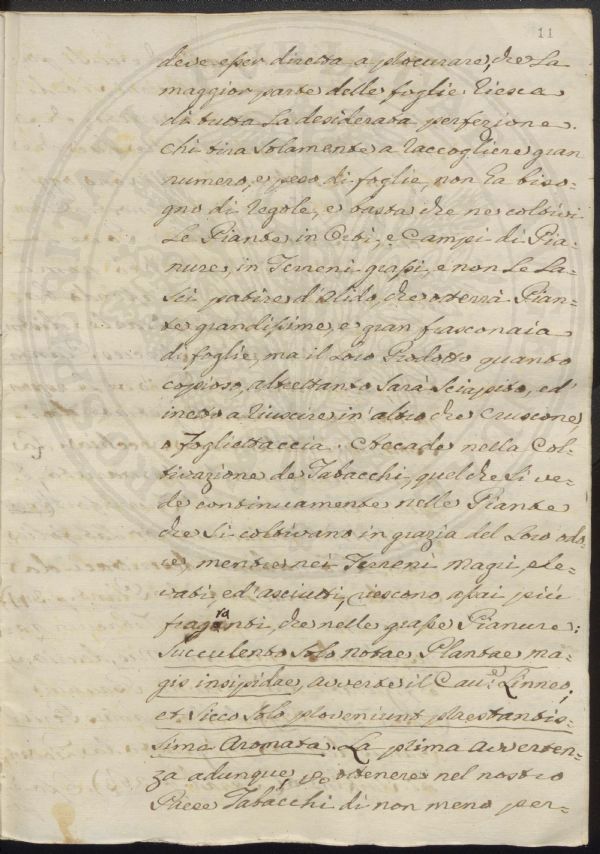 11
deve esser diretta a procurare, che la
maggior parte delle foglie riesca
di tutta la desiderata perfezione.
Chi tira solamente a raccogliere gran
numero, e peso di foglie, non ha biso-
gno di regole, e basta che ne coltivi
le Piante in Orti, e Campi di Pia-
nure, in Terreni grassi, e non le la-
sci patire d'Alido, che otterrà Pian-
te grandissime, e gran frasconaia
di foglie, ma il loro Prodotto quanto
copioso, altrettanto sarà sciapito, ed
inetto a riuscire in altro che Cruscone,
o Fogliettaccia. Accade nella Col-
tivazione de Tabacchi, quel che si ve-
de continuamente nelle Piante
che si coltivano in grazia del loro odo-
re, mentre nei Terreni magri, ele-
vati, ed asciutti, riescono assai più
fragranti, che nelle grasse Pianure:
Succulento solo natae Plantae ma-
gis insipidae, avverte il Cav.e Linneo,
et sicco solo proveniunt praestantis-
sima Aromata. La prima avverten-
za adunque, per ottenere nel nostro
Paese Tabacchi di non meno per-